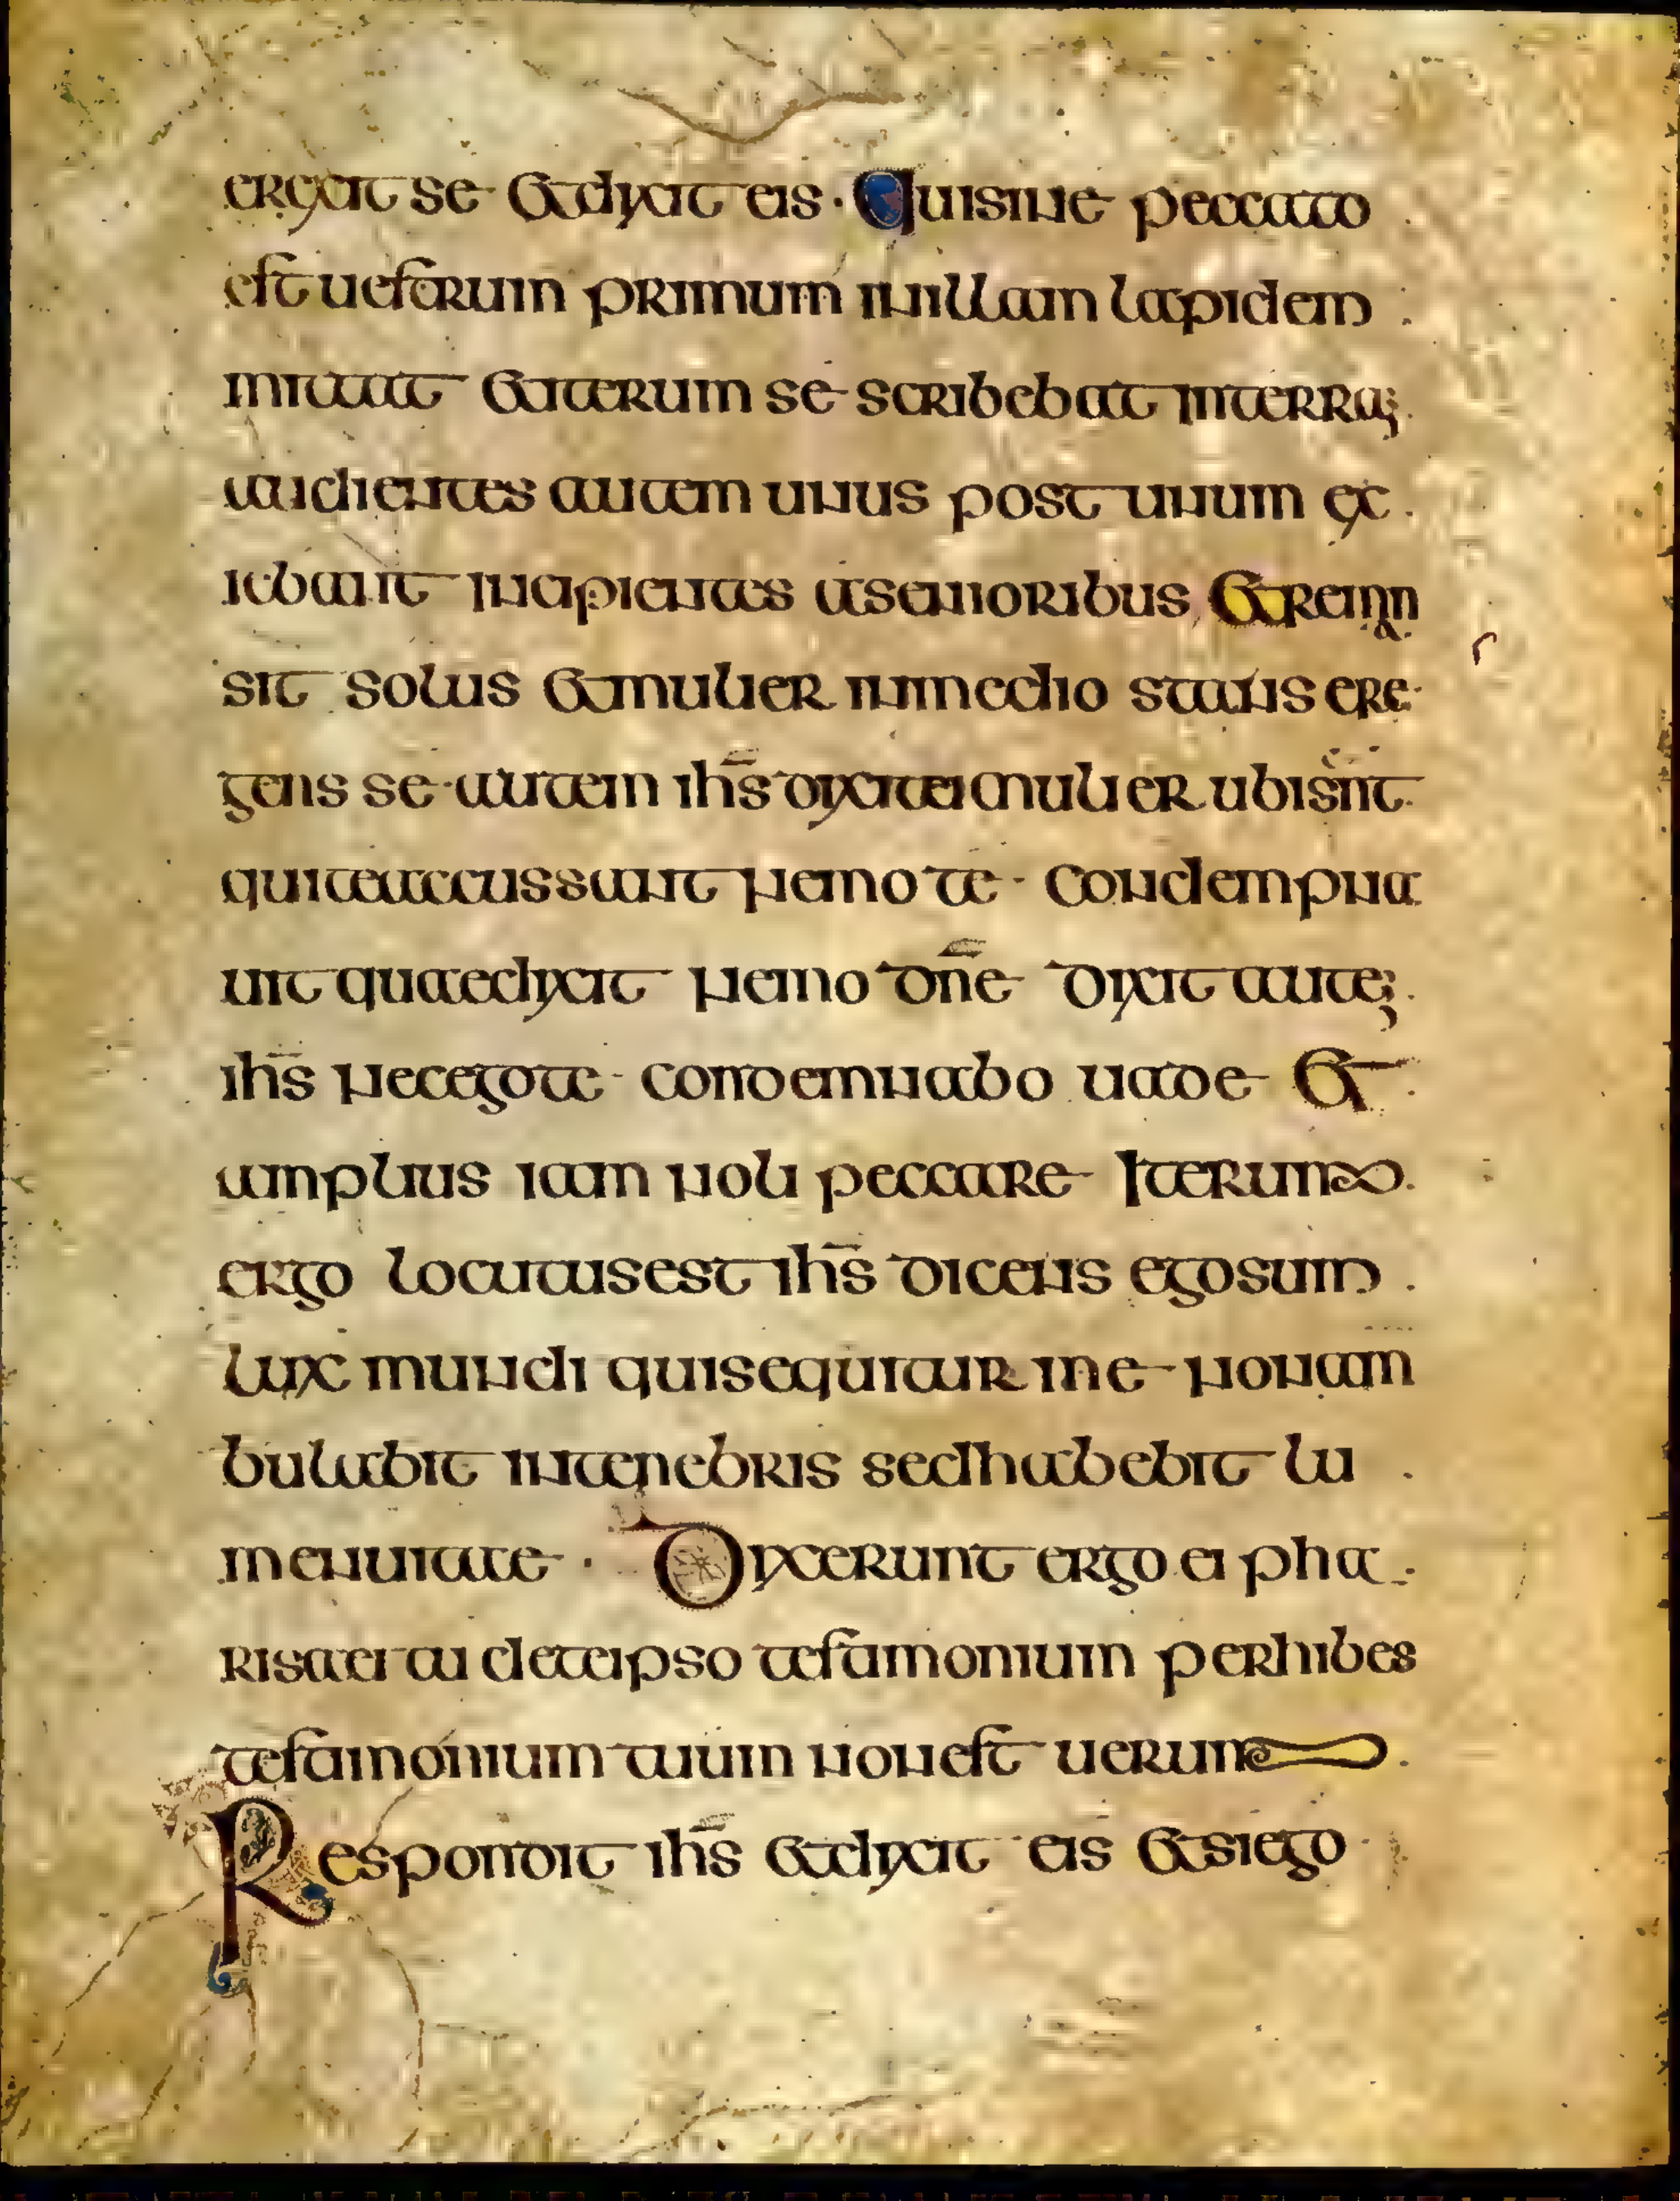 erexit se et dixit eis · Quisine peccato
est uestrum primum inillam lapidem
mittat et iterum se scribebat interra;
audientes autem unus post unum ex
iebant incipientes asenioribus et reman
sit solus et mulier inmedio stans ere
gens se autem ihs̄ dixit ei mulier ubi sn̄t
qui te accussant nemo te condempna
uit quae dixit nemo dn̄e dixit aute;
ihs̄ nec ego te condemnabo uade et
amplius iam noli peccare Iterum
ergo locutus est ihs̄ dicens ego sum
lux mundi qui sequitur me non am
bulabit intenebris sed habebit lu
men uitae · Dixerunt ergo ei pha
risaei tu de te ipso testamonium perhibes
testamonium tuum non est uerum
Respondit ihs̄ et dixit eis et si ego